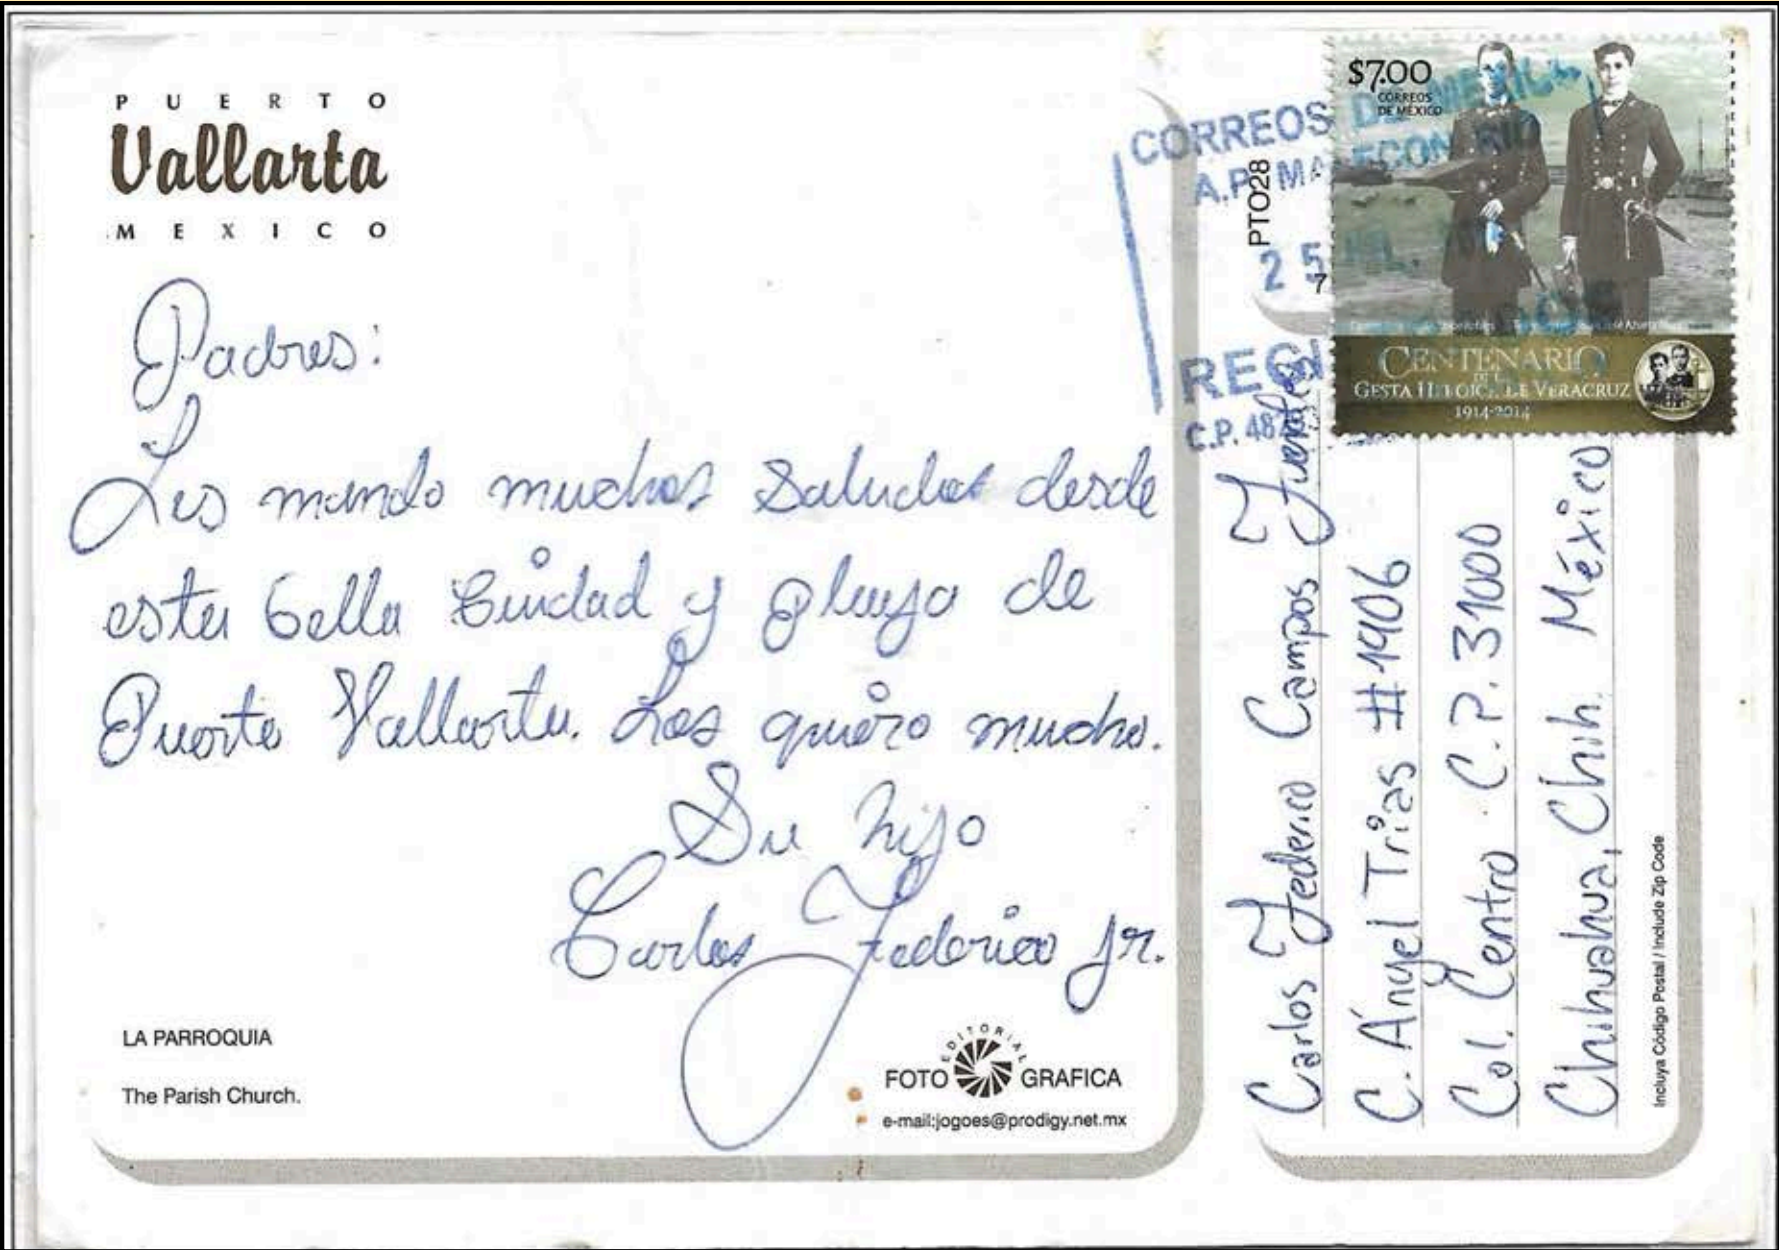 PUERTO
Vallarta
MEXICO
Padres:
Les mando muchos saludos desde
esta bella Ciudad y playa de
Puerto Vallarta. Los quiero mucho.
Su hijo
Carlos Federico Jr.
LA PARROQUIA
The Parish Church.
EDITORIAL
FOTO GRAFICA
e-mail:jogoes@prodigy.net.mx
PTO28
7
CORREOS DE MEXICO
A.P. MALECON RIO
25 JUL.
C.P.
$7.00
CORREOS
DE MÉXICO
CENTENARIO
DE LA
GESTA HEROICA DE VERACRUZ
1914-2014
Carlos Federico Campos Fuentes
C. Ángel Trías #1906
Col. Centro C.P. 31000
Chihuahua, Chih. México
Incluya Código Postal / Include Zip Code